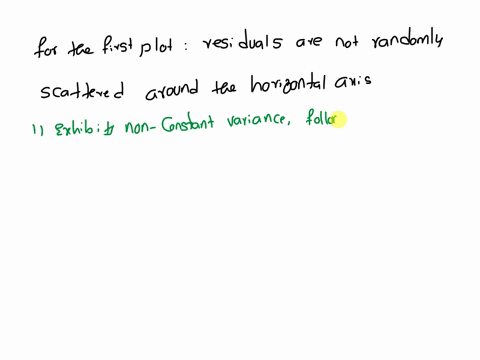 for the first plot : residuals are not randomly
scattered around the horizontal axis
1) Exhibits non-Constant variance, follo